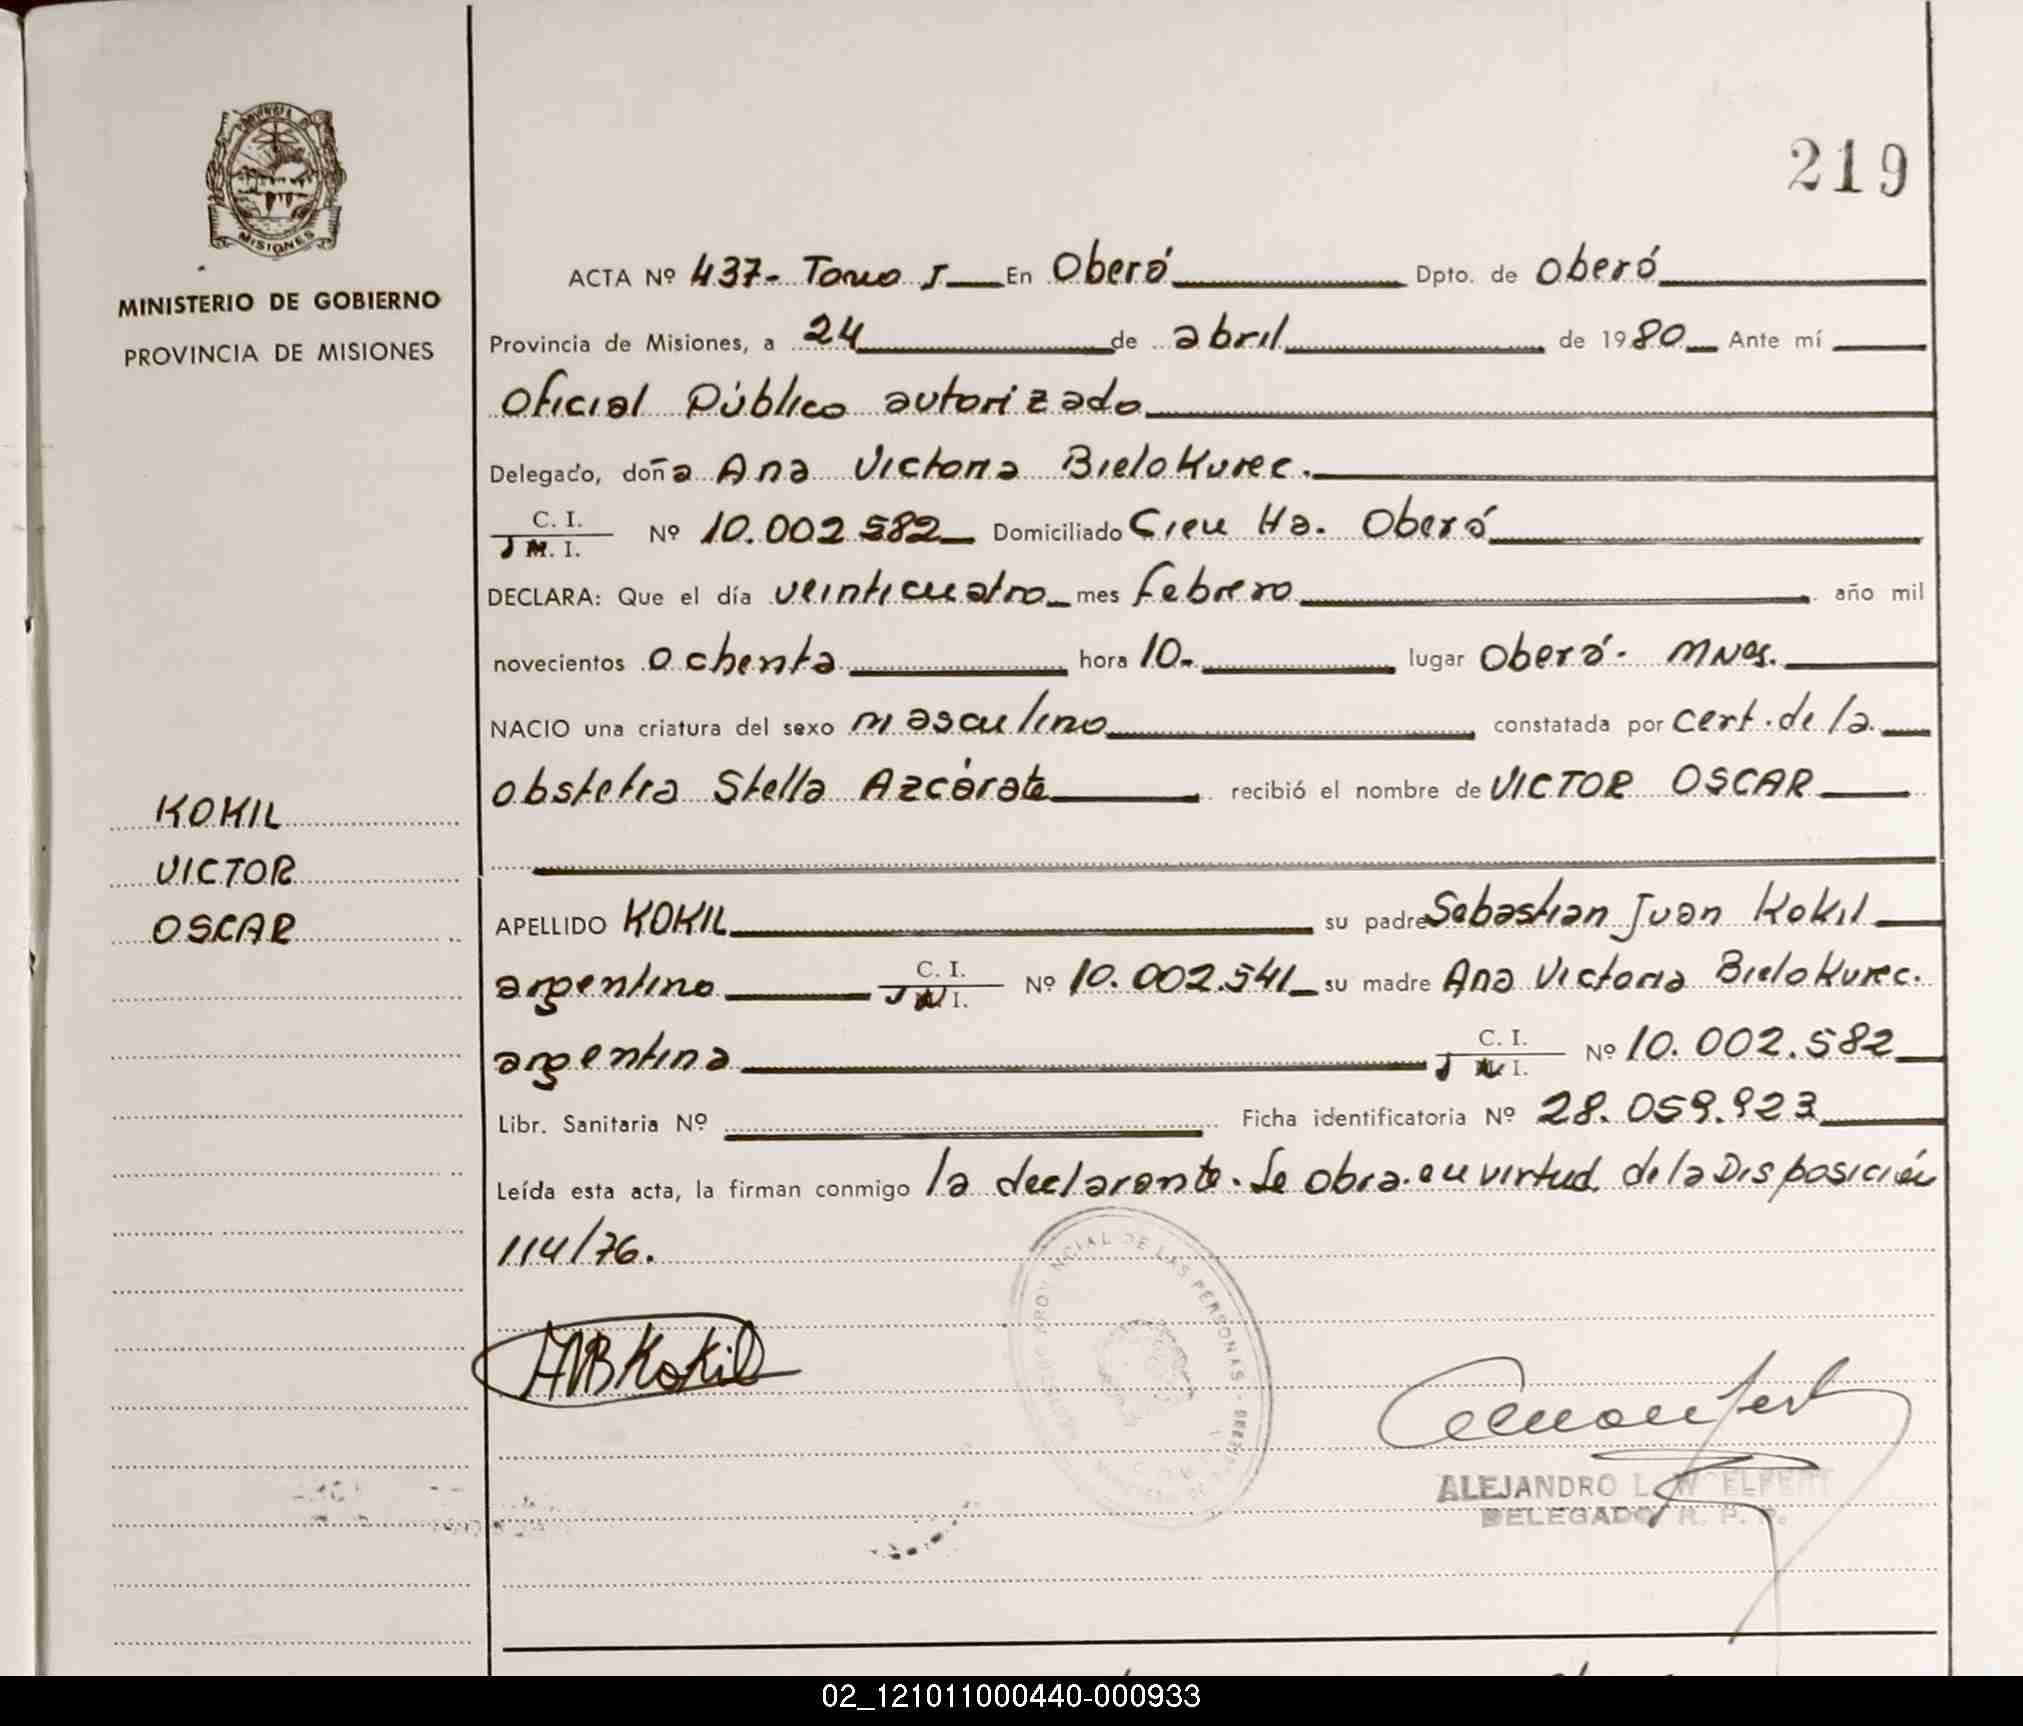 PROVINCIA DE
MISIONES
MINISTERIO DE GOBIERNO
PROVINCIA DE MISIONES
KOKIL
VICTOR
OSCAR
219
ACTA Nº 437- Tomo I En Oberá Dpto. de Oberá
Provincia de Misiones, a 24 de abril de 1980 Ante mí
Oficial Público autorizado
Delegado, doña Ana Victoria Bielokurec.
C. I.
M. I. Nº 10.002.582 Domiciliado Oberá
DECLARA: Que el día veinticuatro mes febrero año mil
novecientos ochenta hora 10. lugar Oberá. Mnes.
NACIO una criatura del sexo masculino constatada por cert. de la
obstetra Stella Azcárate recibió el nombre de VICTOR OSCAR
APELLIDO KOKIL su padre Sebastian Juan Kokil
argentino C. I. Nº 10.002.541 su madre Ana Victoria Bielokurec.
argentina C. I. Nº 10.002.582
Libr. Sanitaria Nº Ficha identificatoria Nº 28.059.923
Leída esta acta, la firman conmigo la declarante. Se obra en virtud de la Disposición
114/76.
AVBKokil
PROVINCIAL DE LAS PERSONAS
ALEJANDRO L.
DELEGADO R. P. P.
02_121011000440-000933